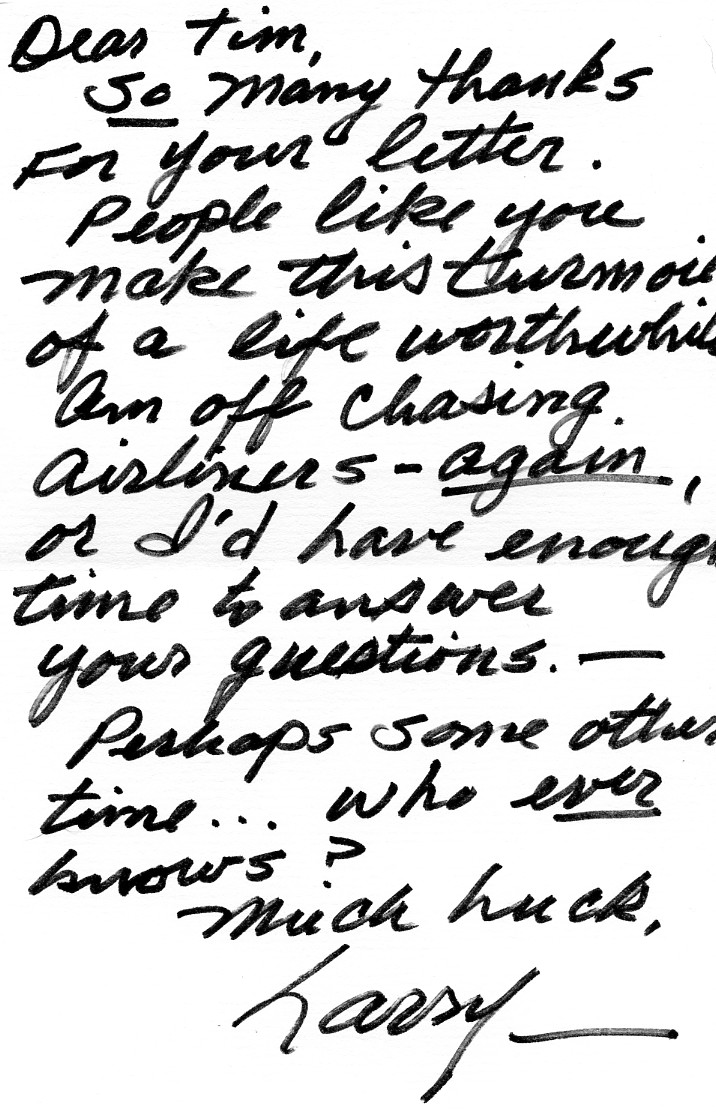 Dear Tim,
So many thanks
For your letter.
People like you
make this turmoil
of a life worthwhile
Am off chasing
airliners - again,
or I'd have enough
time to answer
your questions. —
Perhaps some other
time... who ever
knows?
Much luck,
Larry